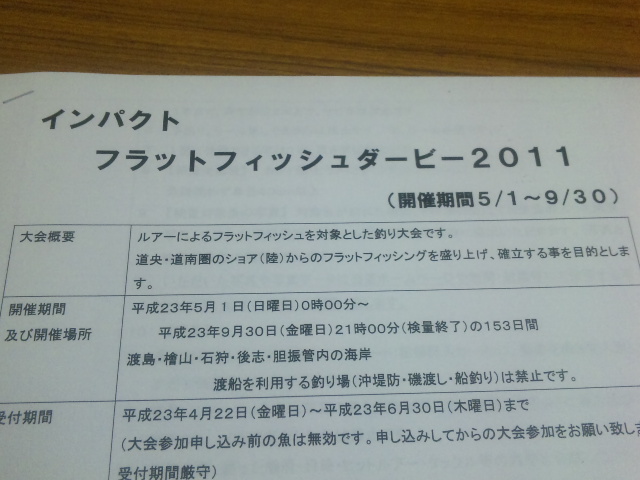 インパクト
フラットフィッシュダービー２０１１
（開催期間５/１～９/３０）
大会概要
ルアーによるフラットフィッシュを対象とした釣り大会です。
道央・道南圏のショア（陸）からのフラットフィッシングを盛り上げ、確立する事を目的としま
す。
開催期間
及び開催場所
平成23年5月1日（日曜日）0時00分～
平成23年9月30日（金曜日）21時00分（検量終了）の153日間
渡島・檜山・石狩・後志・胆振管内の海岸
渡船を利用する釣り場（沖堤防・磯渡し・船釣り）は禁止です。
受付期間
平成23年4月22日（金曜日）～平成23年6月30日（木曜日）まで
（大会参加申し込み前の魚は無効です。申し込みしてからの大会参加をお願い致しま
受付期間厳守）